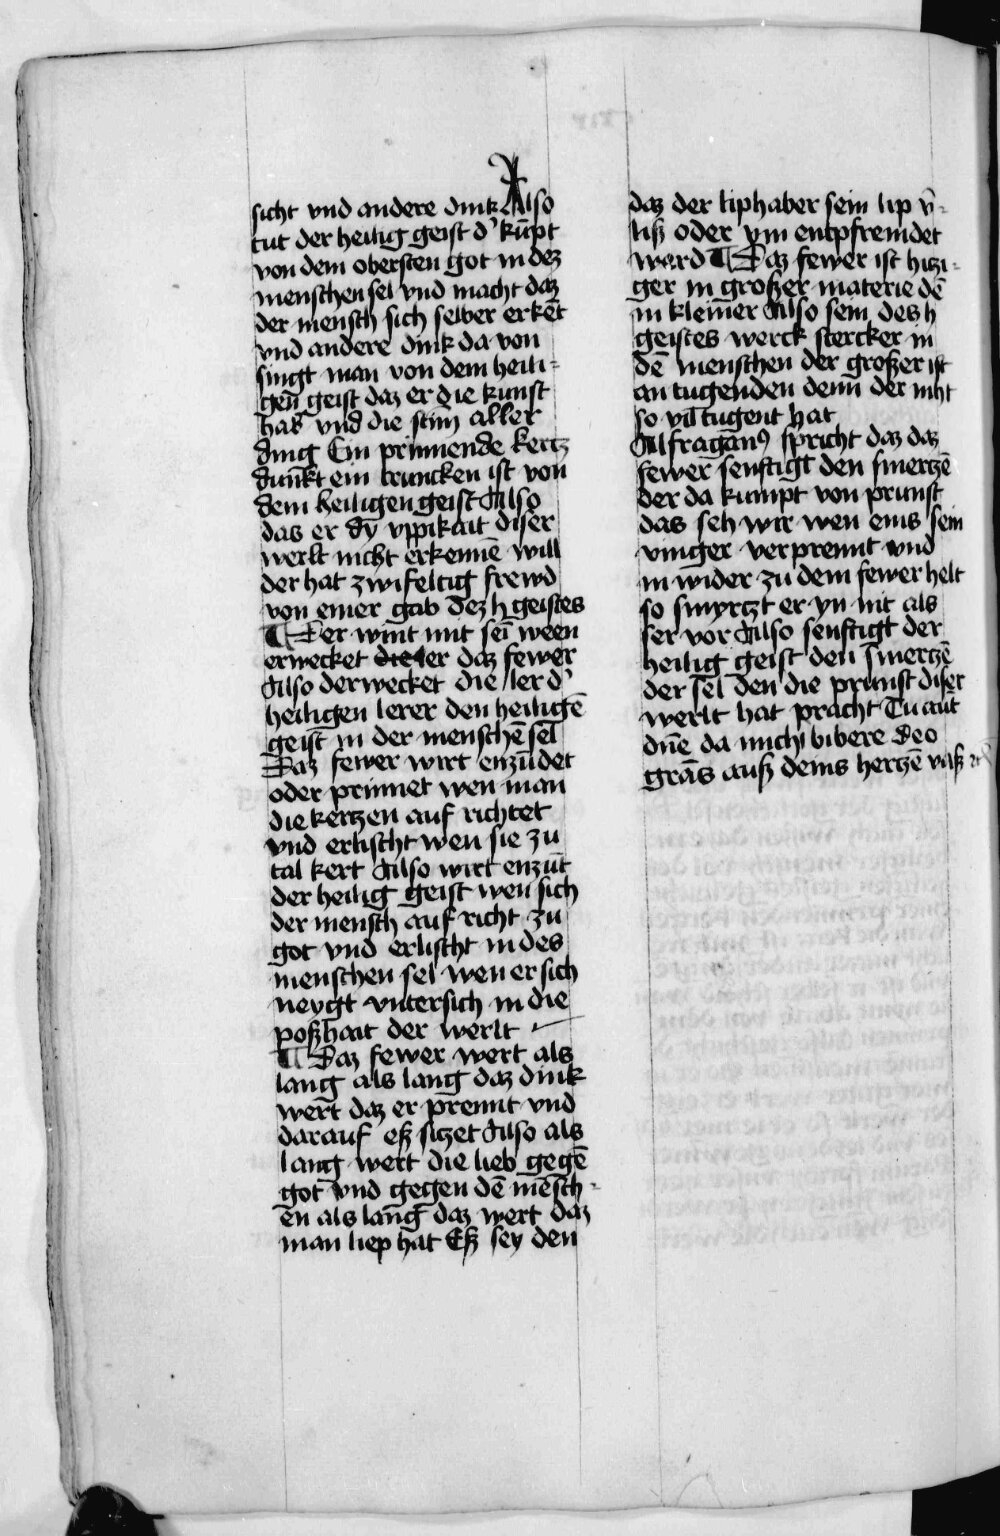 sicht vnd andere dink Also
tut der heilig geist d' kūpt
von dem obersten got in dez
menschen sel vnd macht daz
der mensch sich selber erkēt
vnd andere dink da von
singt man von dem heili-
gen geist daz er die kunst
hab vnd die stim aller
ding Ein prinnende kertz
dunkt ein truncken ist von
dem heiligen geist Also
das er dy vppikait diser
werlt nicht erkennē will
der hat zwifeltig frewd
von einer gab dez h geistes
¶ Der wint mit sei ween
erwecket die er daz fewer
Also derwecket die ler d'
heiligen lerer den heiligē
geist in der menschē sel
Daz fewer wirt enzūdet
oder prinnet wen man
die kertzen auf richtet
vnd erlischt wen sie zu
tal kert Also wirt enzūt
der heilig geist wen sich
der mensch auf richt zu
got vnd erlischt in des
menschen sel wen er sich
neygt vntersich in die
poßhait der werlt
¶ Daz fewer wert als
lang als lang daz dink
wert daz er prennt vnd
darauf eß sitzet Also als
lang wert die lieb gegē
got vnd gegen dē mēsch-
en als lang daz wert daz
man liep hat Eß sey den
daz der liphaber sein lip v̄-
liß oder ym entpfremdet
werd ¶ Daz fewer ist hitzi-
ger in großer materie dē
in kleiner Also sein des h
geistes werck stercker in
dē menschen der großer ist
an tugenden denn der nicht
so vil tugent hat
Alfraganꝰ spricht daz daz
fewer senftigt den smerczē
der da kumpt von prunst
das seh wir wen eins sein
vinger verprennt vnd
in wider zu dem fewer helt
so smyrczt er yn nit als
ser vor Also senftigt der
heilig geist den smerczē
der sel den die prunst diser
werlt hat pracht Tu aut̄
dn̄e da michi bibere Deo
grās auß deins hertzē vaß